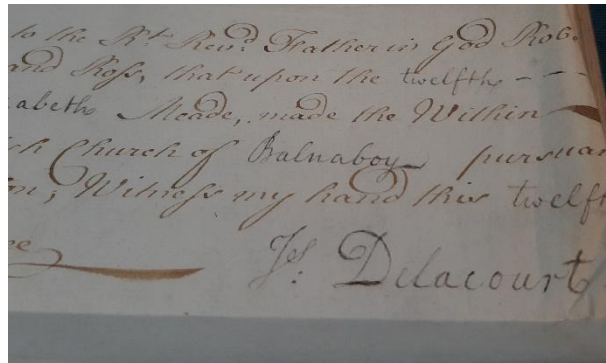 to the Rt. Revd. Father in God Rob.
and Ross, that upon the twelfth - - -
zabeth Meade, made the Within
ish Church of Balnaboy pursuan
on; Witness my hand this twelft
Js. Delacourt